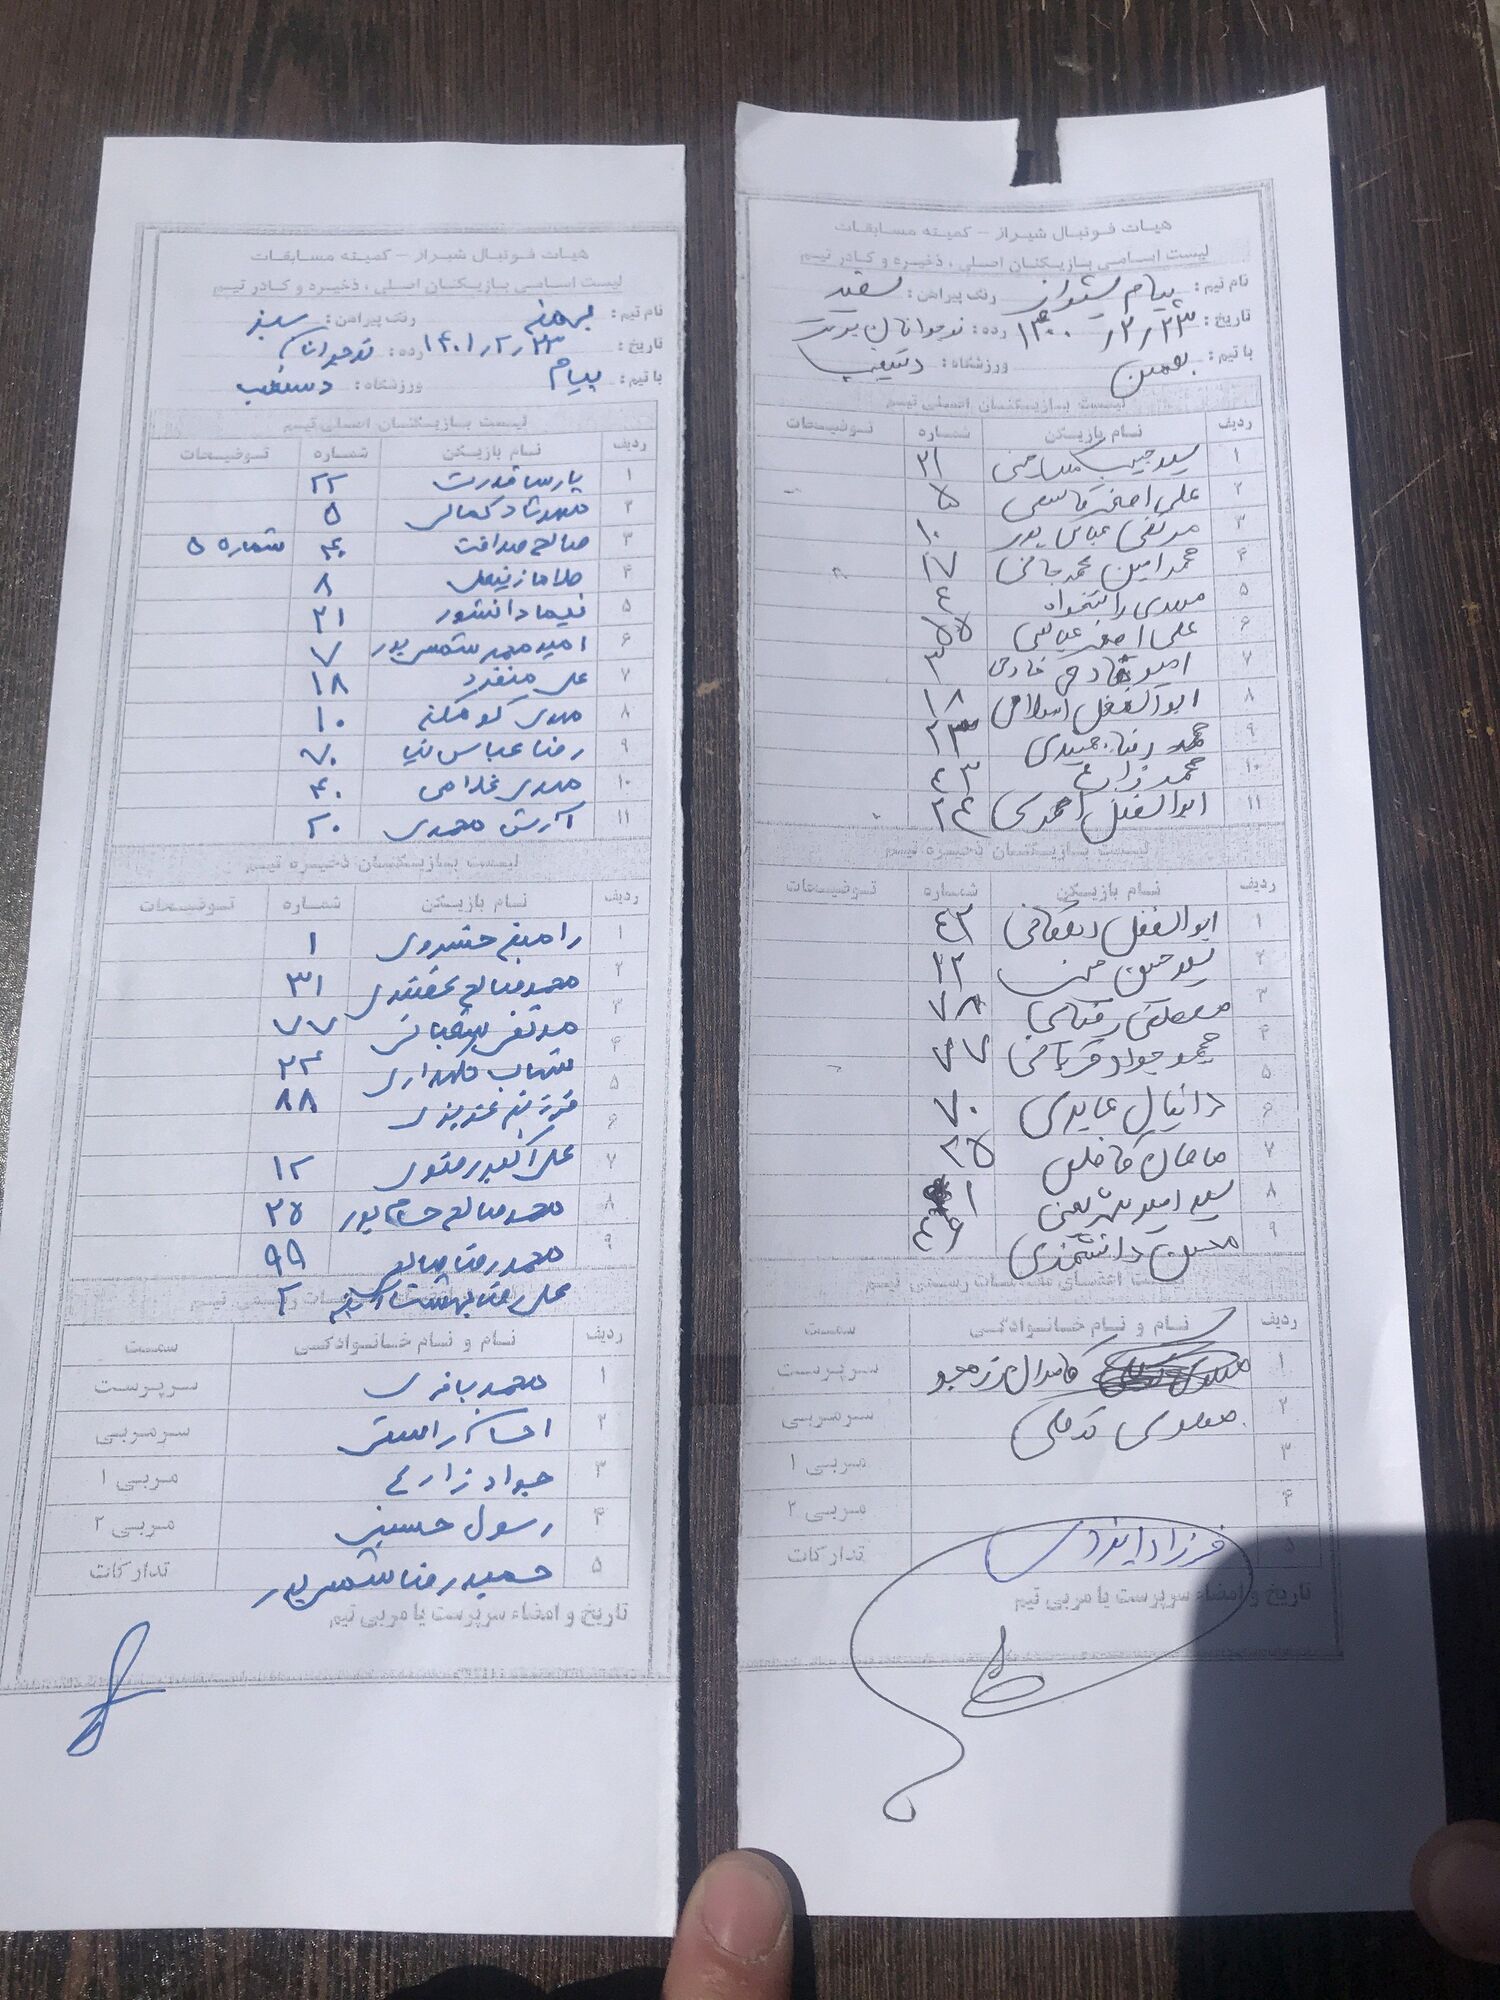 هیات فوتبال شیراز - کمیته مسابقات
لیست اسامی بازیکنان اصلی ، ذخیره و کادر تیم
نام تیم : پیام شیراز رنگ پیراهن : سفید
تاریخ : ۲۳ / ۲ / رده : نوجوانان برتر
با تیم : بهمن ورزشگاه : دستغیب
لیست بازیکنان اصلی تیم
ردیف نام بازیکن شماره توضیحات
۱ سید حبیب ۲۱
۲ علی اصغر قاسمی ۵
۳ مرتضی عباس پور ۱۰
۴ محمد امین محمد جانی ۱۷
۵ مهدی راستخواه ٤
۶ علی اصغر عباسی ۵۵
۷ امیر خادمی ۳
۸ ابوالفضل اسلامی ۱۸
۹ محمد رضا جمیدی ۲۳
۱۰ محمد زارع ٤۳
۱۱ ابوالفضل احمدی ۲٤
لیست بازیکنان ذخیره تیم
ردیف نام بازیکن شماره توضیحات
۱ ابوالفضل ٤۲
۲ سید حسین ۲۲
۳ مصطفی ۷۸
۴ محمد جواد قربانی ۷۷
۵ دانیال عابدی ۷۰
۶ ماهان فاضلی ۲۵
۷ سید امیر شریفی ۱
۸ محسن دانشمندی
۹
لیست اعضای جلسات رسمی تیم
ردیف نام و نام خانوادگی سمت
۱ کامران رزمجو سرپرست
۲ مهدی سرمربی
۳ مربی ۱
۴ مربی ۲
۵ فرزاد ایزدی تدارکات
تاریخ و امضاء سرپرست یا مربی تیم
هیات فوتبال شیراز - کمیته مسابقات
لیست اسامی بازیکنان اصلی ، ذخیره و کادر تیم
نام تیم : بهمن رنگ پیراهن : سبز
تاریخ : ۱۴۰۱/۲/۲۳ رده : نوجوانان
با تیم : پیام ورزشگاه : دستغیب
لیست بازیکنان اصلی تیم
ردیف نام بازیکن شماره توضیحات
۱ پارسا قدرت ۲۲
۲ مهرشاد کمالی ۵
۳ صالح صداقت ۴۰ شماره ۵
۴ ۸
۵ نیما دانشور ۲۱
۶ امیرمحمد شمس پور ۷
۷ علی منفرد ۱۸
۸ مهدی کوهکن ۱۰
۹ رضا عباس نیا ۷۰
۱۰ مهدی غلامی ۴۰
۱۱ آرش محمدی ۲۰
لیست بازیکنان ذخیره تیم
ردیف نام بازیکن شماره توضیحات
۱ رامین خسروی ۱
۲ محمدصالح ۳۱
۳ مرتضی شعبانی ۷۷
۴ شهاب نگهداری ۲۴
۵ فرزین عزیزی ۸۸
۶
۷ علی اکبر رضوی ۱۲
۸ محمدصالح حسام پور ۲۵
۹ محمدرضا صالح ۹۹
علی رضا بهشت آیین ۲
ردیف نام و نام خانوادگی سمت
۱ محمد باقری سرپرست
۲ احسان راستی سرمربی
۳ جواد زارع مربی ۱
۴ رسول حسینی مربی ۲
۵ حمیدرضا شمس پور تدارکات
تاریخ و امضاء سرپرست یا مربی تیم